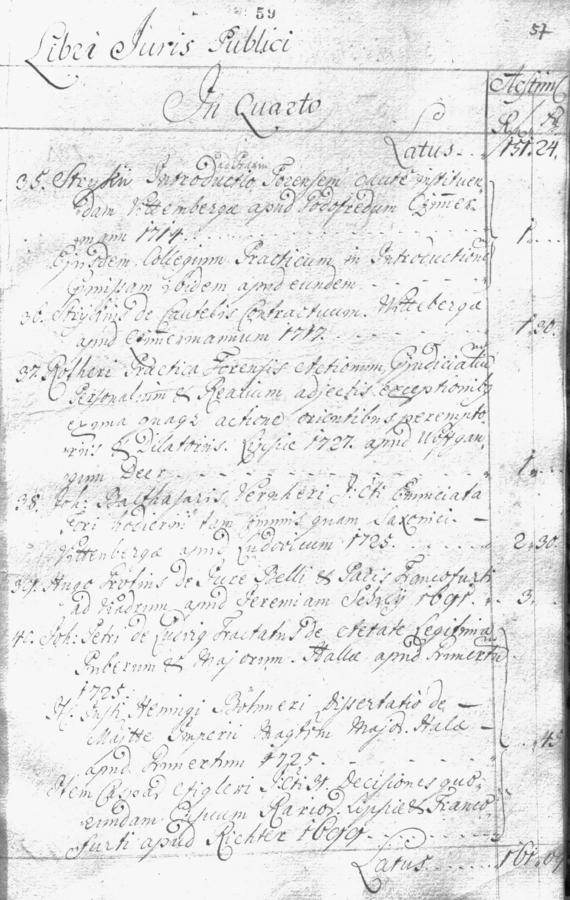 59
57
Libri Juris Publici
Aestim
In Quarto
Latus. 151. 24.
35. Strykii Introductio Forensem caute instituen
dam Wittembergæ apud Godofredum Zimmer
man 1714. 1.
Ejusdem Collegium Practicum in Introductione
ibidem apud eundem
36. Strykius de Cautelis Contractuum. Witebergæ
apud Zimmermannum 1717. 1. 30.
37. Rotheri Practica Forensis Actionum Judicialiu
Personalium & Realium adjectis exceptionib9
actione orientibus perempto
riis & Dilatoriis. Lipsiæ 1727. apud Wolfgan
gum Deer 1.
38. Joh: Balthasaris Vergheri Jcti Enunciata
Fori hodierni tam communis quam Saxonici. –
Vittenbergæ apud Ludovicum 1725. 2. 30.
39. Hugo Grotius de Jure Belli & Pacis Francofurti
ad Viadrum apud Jeremiam 1691. 3.
40. Joh: Petri de Ludvig Tractatus de Aetate Legitima
Puberum & Majorum. Hallæ apud
1725.
It. Justi Heningi Böhmeri Dissertatio de –
Majtte Imperii Halæ –
apud 1725. 45
Item Caspar Jcti Decisiones quo-
rundam Casuum Rarior. Lipsiæ & Franco
furti apud Richter 1699.
Latus